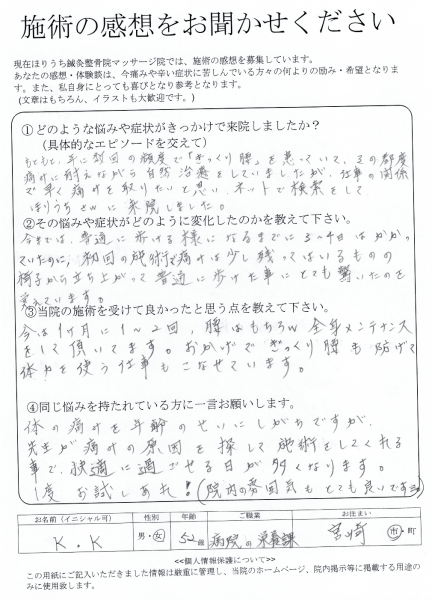 施術の感想をお聞かせください
現在ほりうち鍼灸整骨院マッサージ院では、施術の感想を募集しています。
あなたの感想・体験談は、今痛みや辛い症状に苦しんでいる方々の何よりの励み・希望となりま
す。また、私自身にとっても喜びとなり参考となります。
(文章はもちろん、イラストも大歓迎です。)
①どのような悩みや症状がきっかけで来院しましたか？
(具体的なエピソードを交えて)
もともと、年に数回の頻度で「ぎっくり腰」を患っていて、その都度
痛みに耐えながら自然治癒をしていましたが、仕事の関係
で早く痛みを取りたいと思い、ネットで検索をして
ほりうちさんに来院しました。
②その悩みや症状がどのように変化したのかを教えて下さい。
今までは、普通に歩ける様になるまでに3〜4日はかかっ
ていたのに、初回の施術で痛みは少し残ってはいるものの
椅子から立ち上がって普通に歩けた事にとても驚いたのを
覚えています。
③当院の施術を受けて良かったと思う点を教えて下さい。
今は1ヶ月に1〜2回、腰はもちろん全身メンテナンス
をして頂いてます。おかげでぎっくり腰も防げて
体力を使う仕事もこなせています。
④同じ悩みを持たれている方に一言お願いします。
体の痛みを年齢のせいにしがちですが、
先生が痛みの原因を探して施術をしてくれる
事で、快適に過ごせる日が多くなります。
1度お試しあれ！(院内の雰囲気もとても良いです
お名前(イニシャル可) 性別 年齢 ご職業 お住まい
K.K 男・女 52歳 病院の栄養課 宮崎 市・町
<<個人情報保護について>>
この用紙にご記入いただきました情報は厳重に管理し、当院のホームページ、院内掲示等に掲載する用途の
みに使用致します。